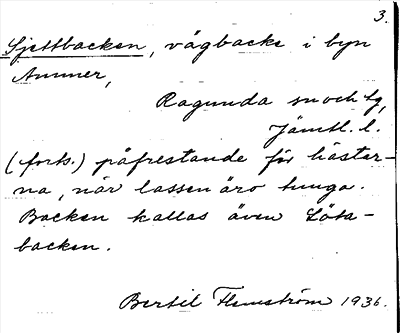 3.
Sjettbacken, vågbacke i byn
Ammer,
Ragunda sn och tg,
Jämtl. l.
(forts.) påfrestande för hästar-
na, när lassen äro tunga.
Backen kallas även Löta-
backen.
Bertil Flemström 1936.